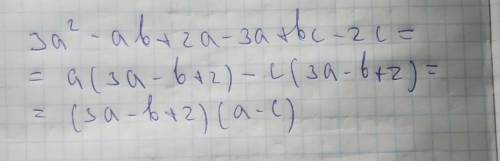 3a² - ab + 2a - 3a + bc - 2c =
= a(3a - b + 2) - c(3a - b + 2) =
= (3a - b + 2)(a - c)